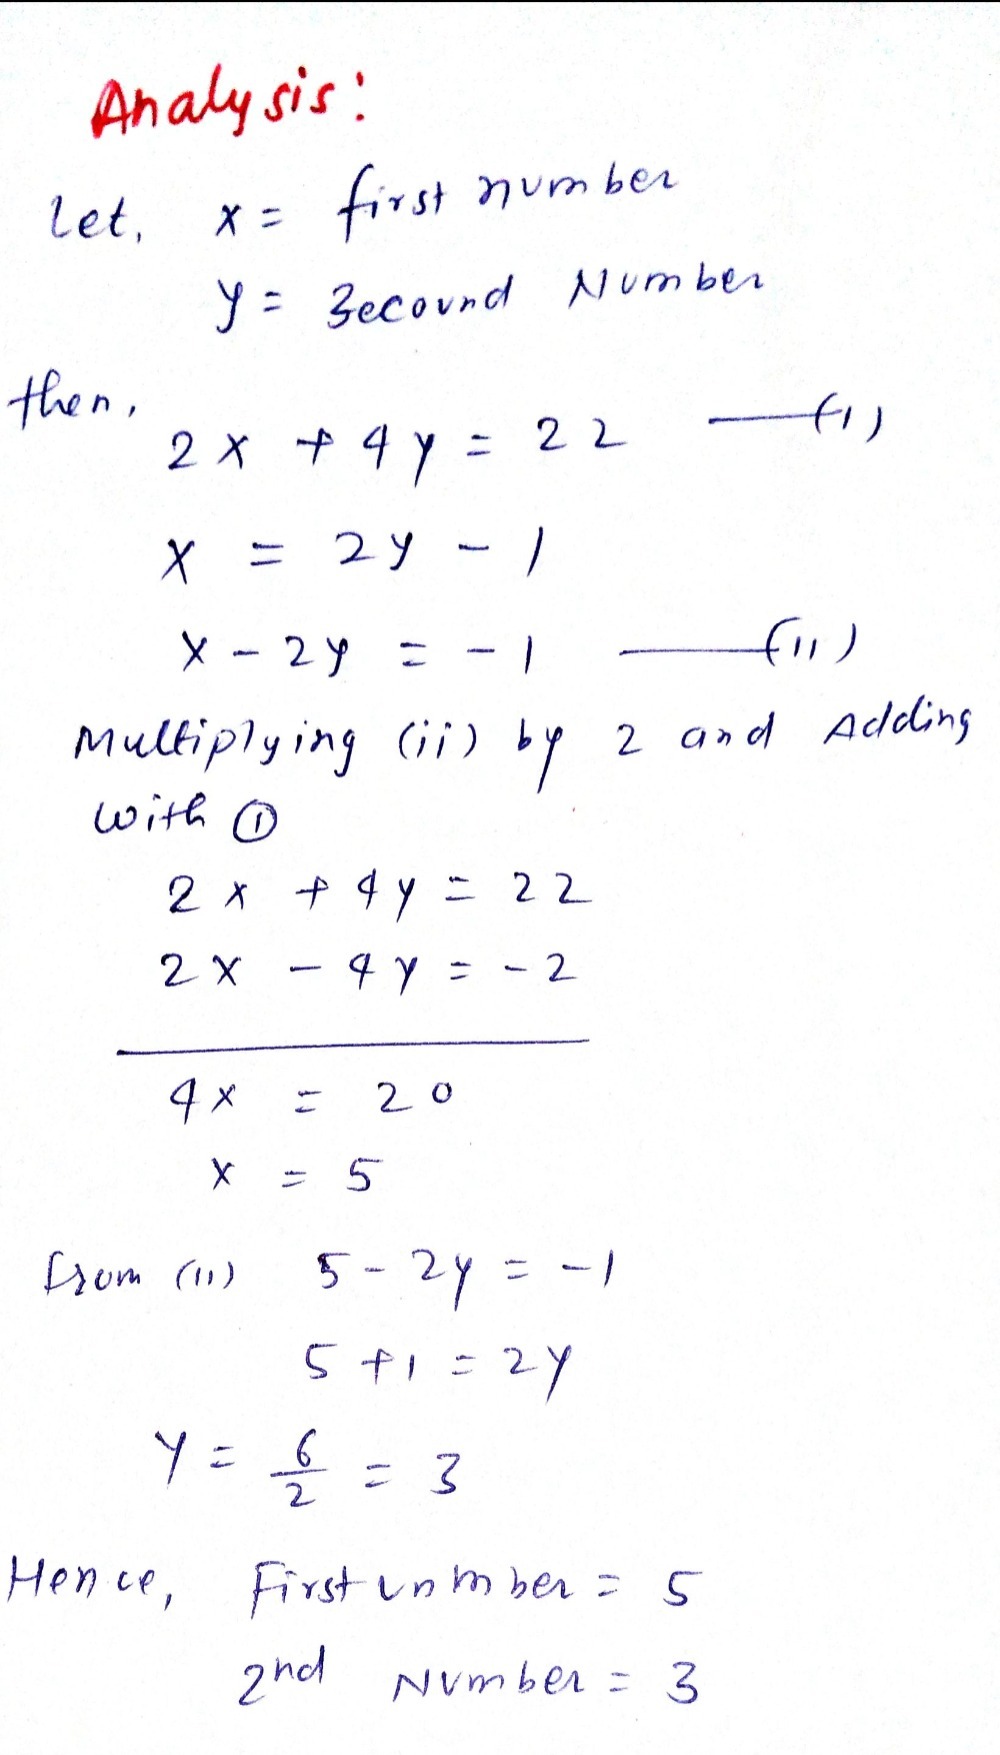 Analysis:
Let, x = first number
y = Secound Number
then,
2x + 4y = 22 —(i)
x = 2y - 1
x - 2y = -1 —(ii)
Multiplying (ii) by 2 and Adding
with ①
2x + 4y = 22
2x - 4y = -2
4x = 20
x = 5
from (ii) 5 - 2y = -1
5 + 1 = 2y
y = 6/2 = 3
Hence, First unmber = 5
2nd Number = 3